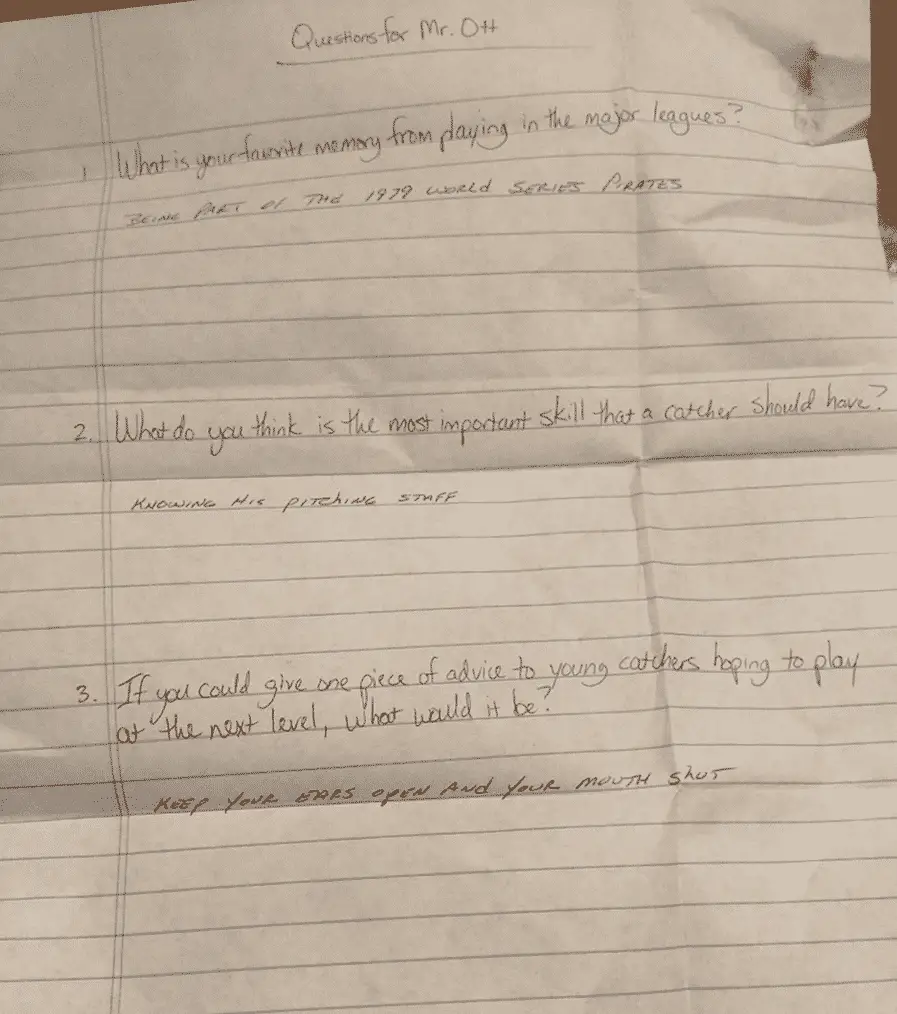 Questions for Mr. Ott
1 What is your favorite memory from playing in the major leagues?
BEING PART OF THE 1979 WORLD SERIES PIRATES
2. What do you think is the most important skill that a catcher should have?
KNOWING HIS PITCHING STAFF
3. If you could give one piece of advice to young catchers hoping to play
at the next level, what would it be?
KEEP YOUR EARS OPEN AND YOUR MOUTH SHUT